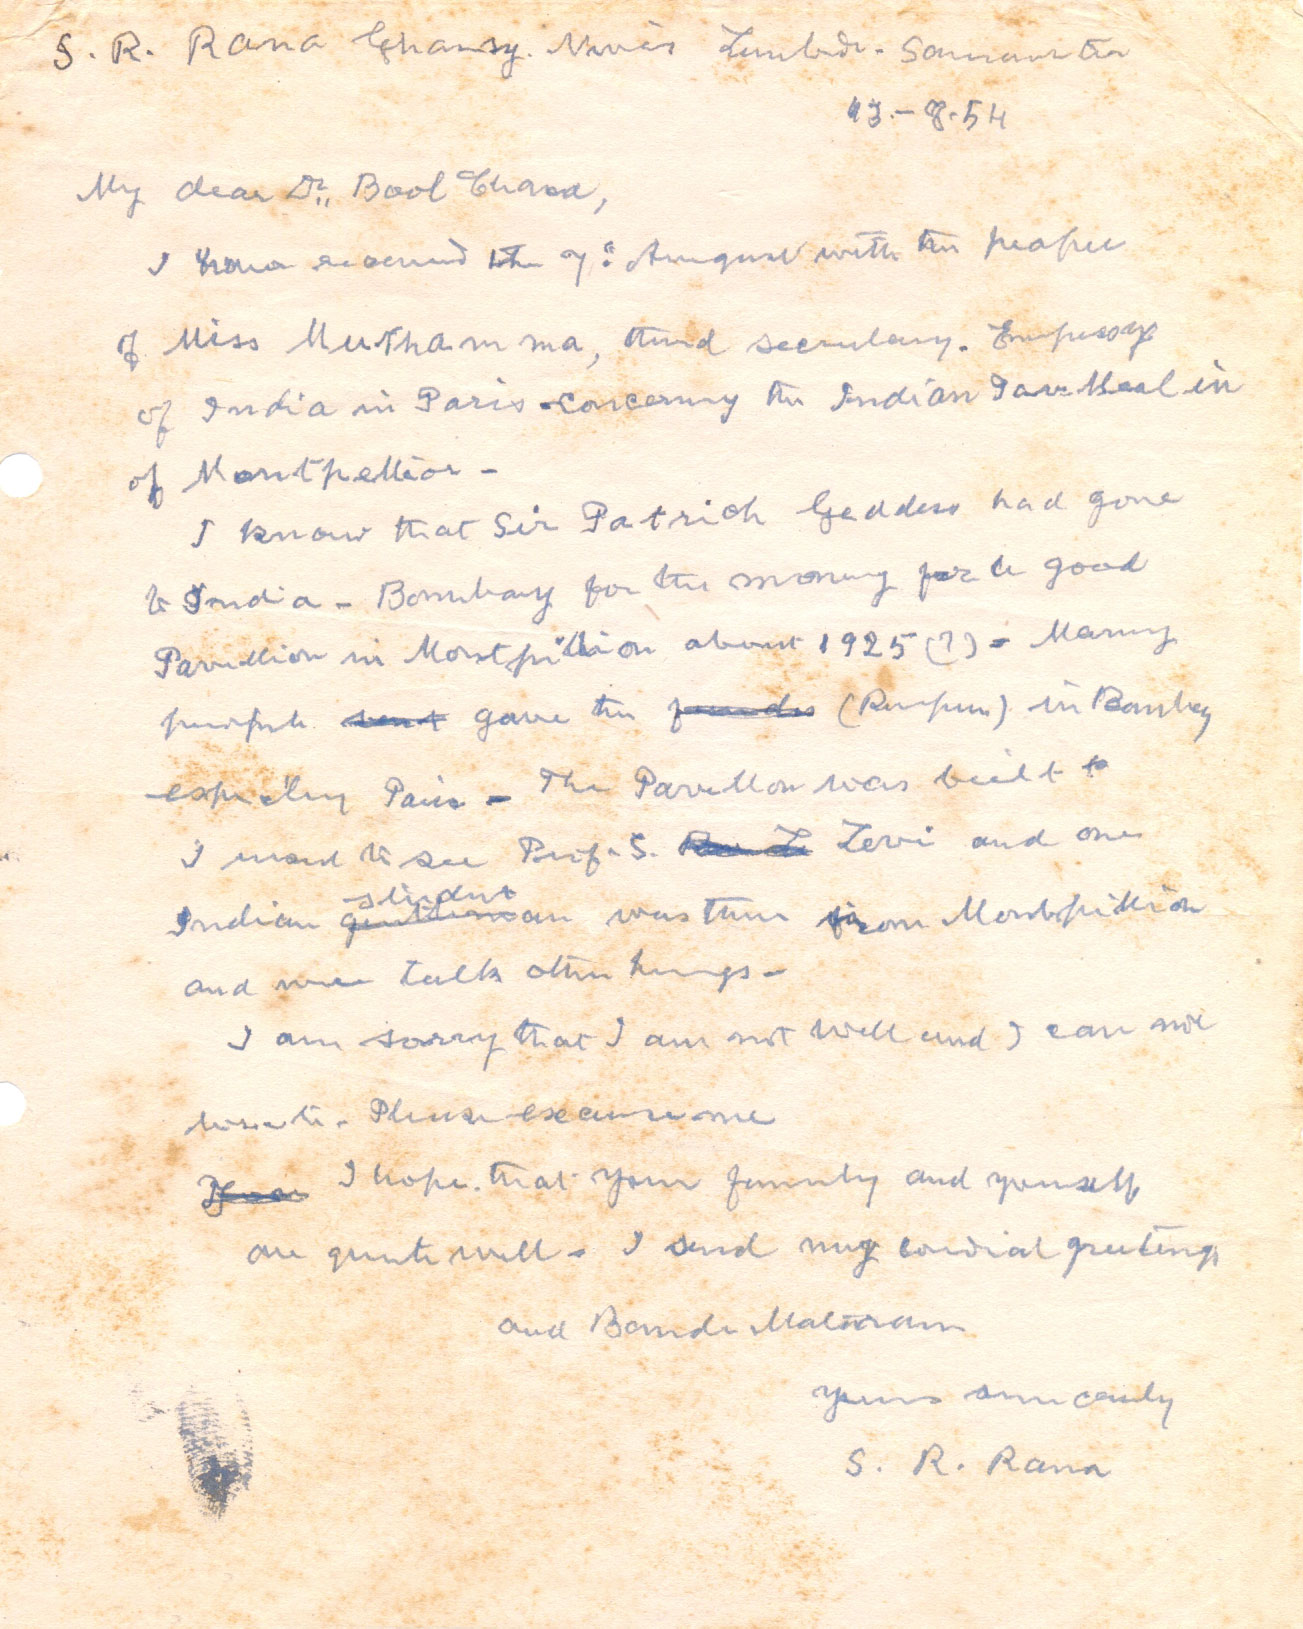 S. R. Rana Ghansy. Nivas Limbdi - Saurashtra
13.-8.54
My dear Dr. Bool Chand,
I have received the 7: August with the paper
of Miss Muthamma, third secretary. Empassy
of India in Paris concerning the Indian Pavellion in
of Montpellior -
I know that Sir Patrich Geddess had gone
to India - Bombay for the money for a good
Pavillion in Montpillion about 1925 (?) - Manny
peopele sent gave the (Rupees) in Bombey
Paris - The Pavellon was built
I used to see Prof. S. Levi and one
Indian student gentleman was there from Montpillion
and wee talk other things -
I am sorry that I am not well and I can not
write. Please excuse me
I hope. that your family and yourself
are quite well - I send my cordial greetings
and Bande Mataram
yours sincerely
S. R. Rana